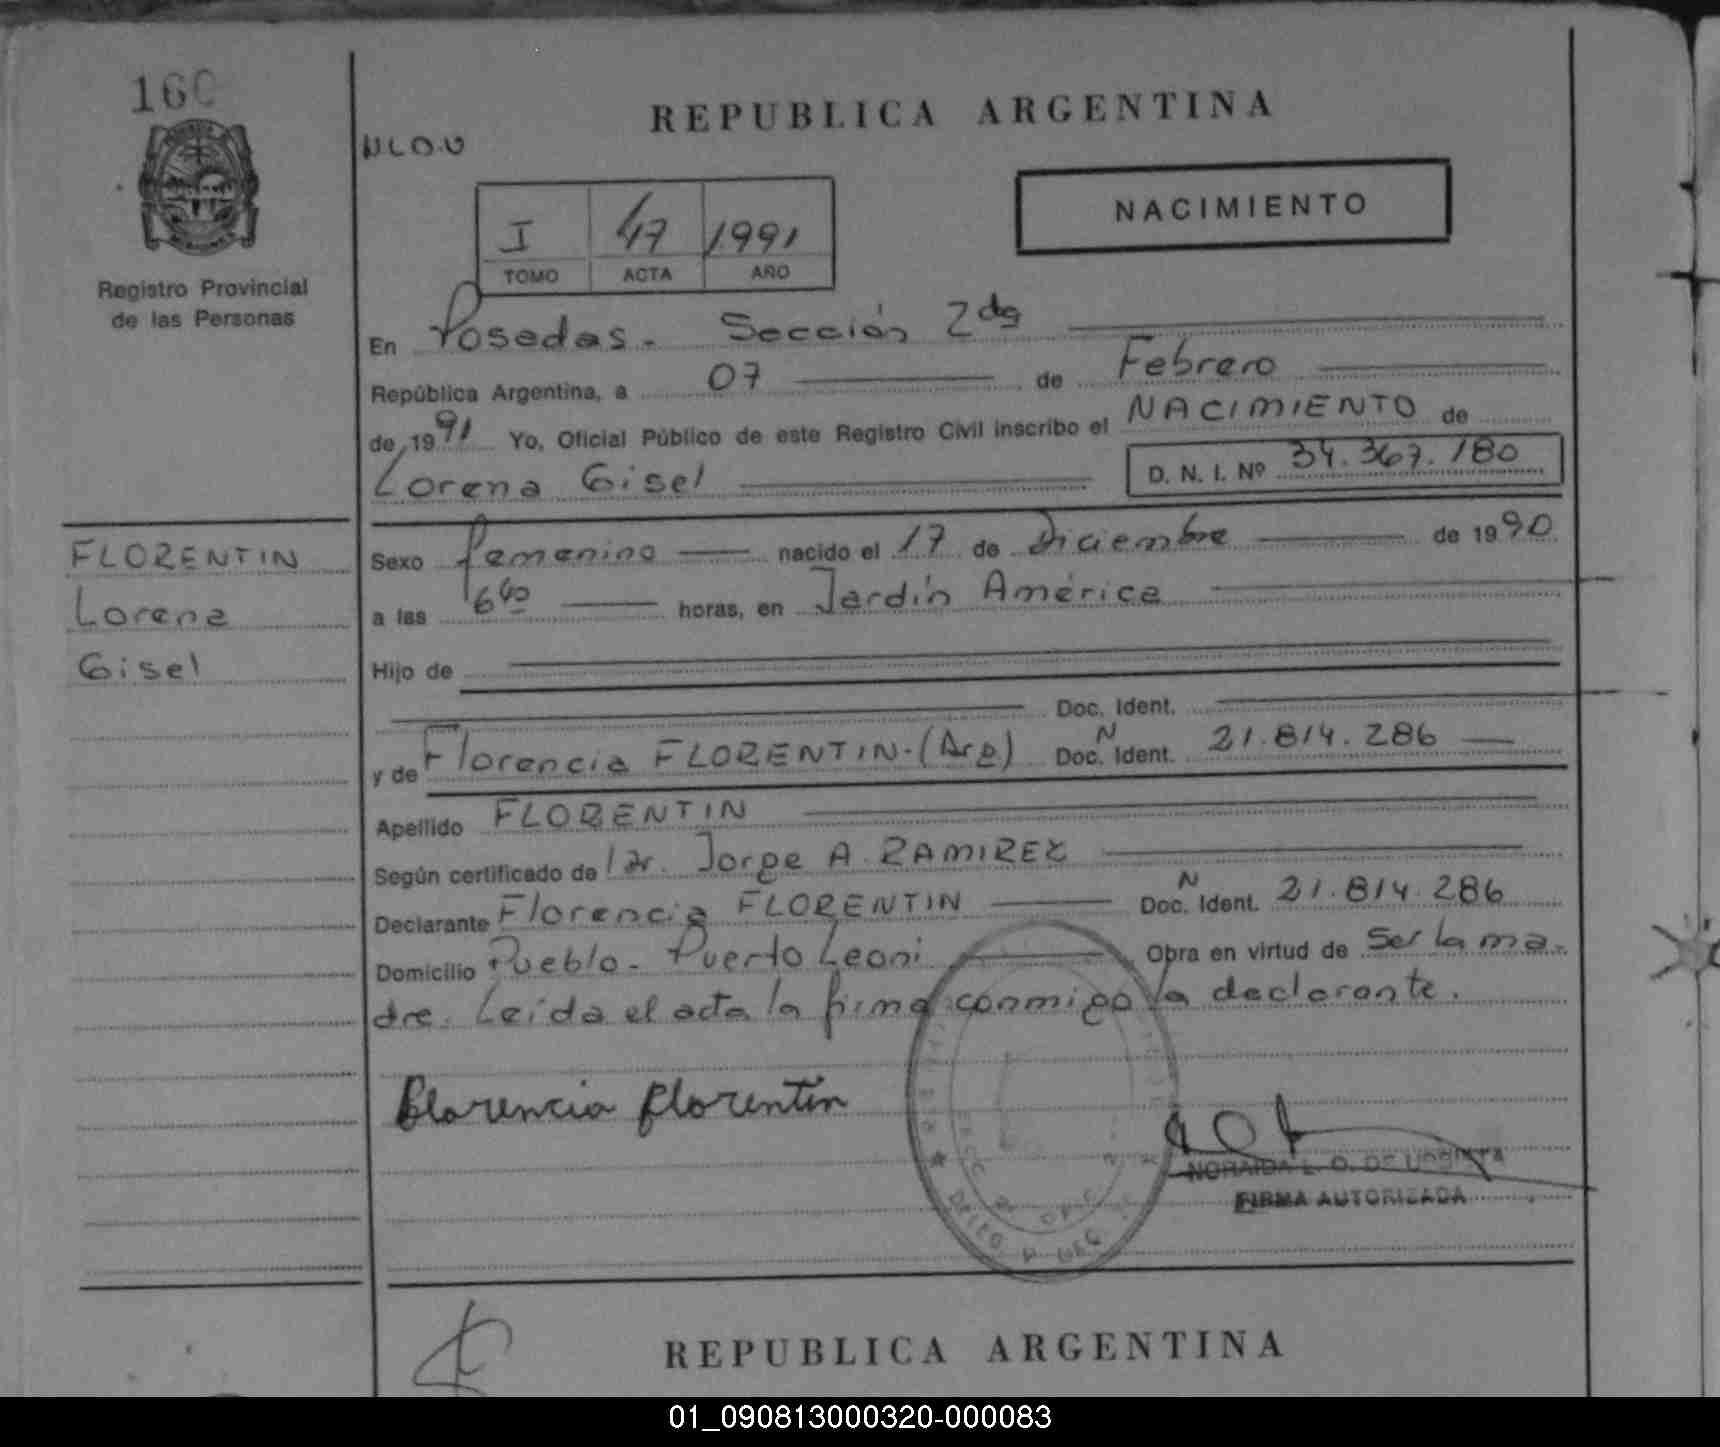 160
REPUBLICA ARGENTINA
NLO.U
NACIMIENTO
I 47 1991
TOMO ACTA AÑO
Registro Provincial
de las Personas
En Posadas - Sección 2da
República Argentina, a 07 de Febrero
de 1991 Yo, Oficial Público de este Registro Civil inscribo el NACIMIENTO de
Lorena Gisel D. N. I. Nº 34.367.180
FLORENTIN
Lorena
Gisel
Sexo femenino nacido el 17 de Diciembre de 1990
a las 16 40 horas, en Jardín América
Hijo de
Doc. Ident.
y de Florencia FLORENTIN-(Arg) Doc. N Ident. 21.814.286
Apellido FLORENTIN
Según certificado de Dr. Jorge A. RAMIREZ
Declarante Florencia FLORENTIN Doc. N Ident. 21.814.286
Domicilio Pueblo - Puerto Leoni Obra en virtud de Ser la ma-
dre. Leída el acta la firma conmigo la declarante.
Florencia Florentin
NORAIDA L. O. DE
FIRMA AUTORIZADA
REPUBLICA ARGENTINA
01_090813000320-000083